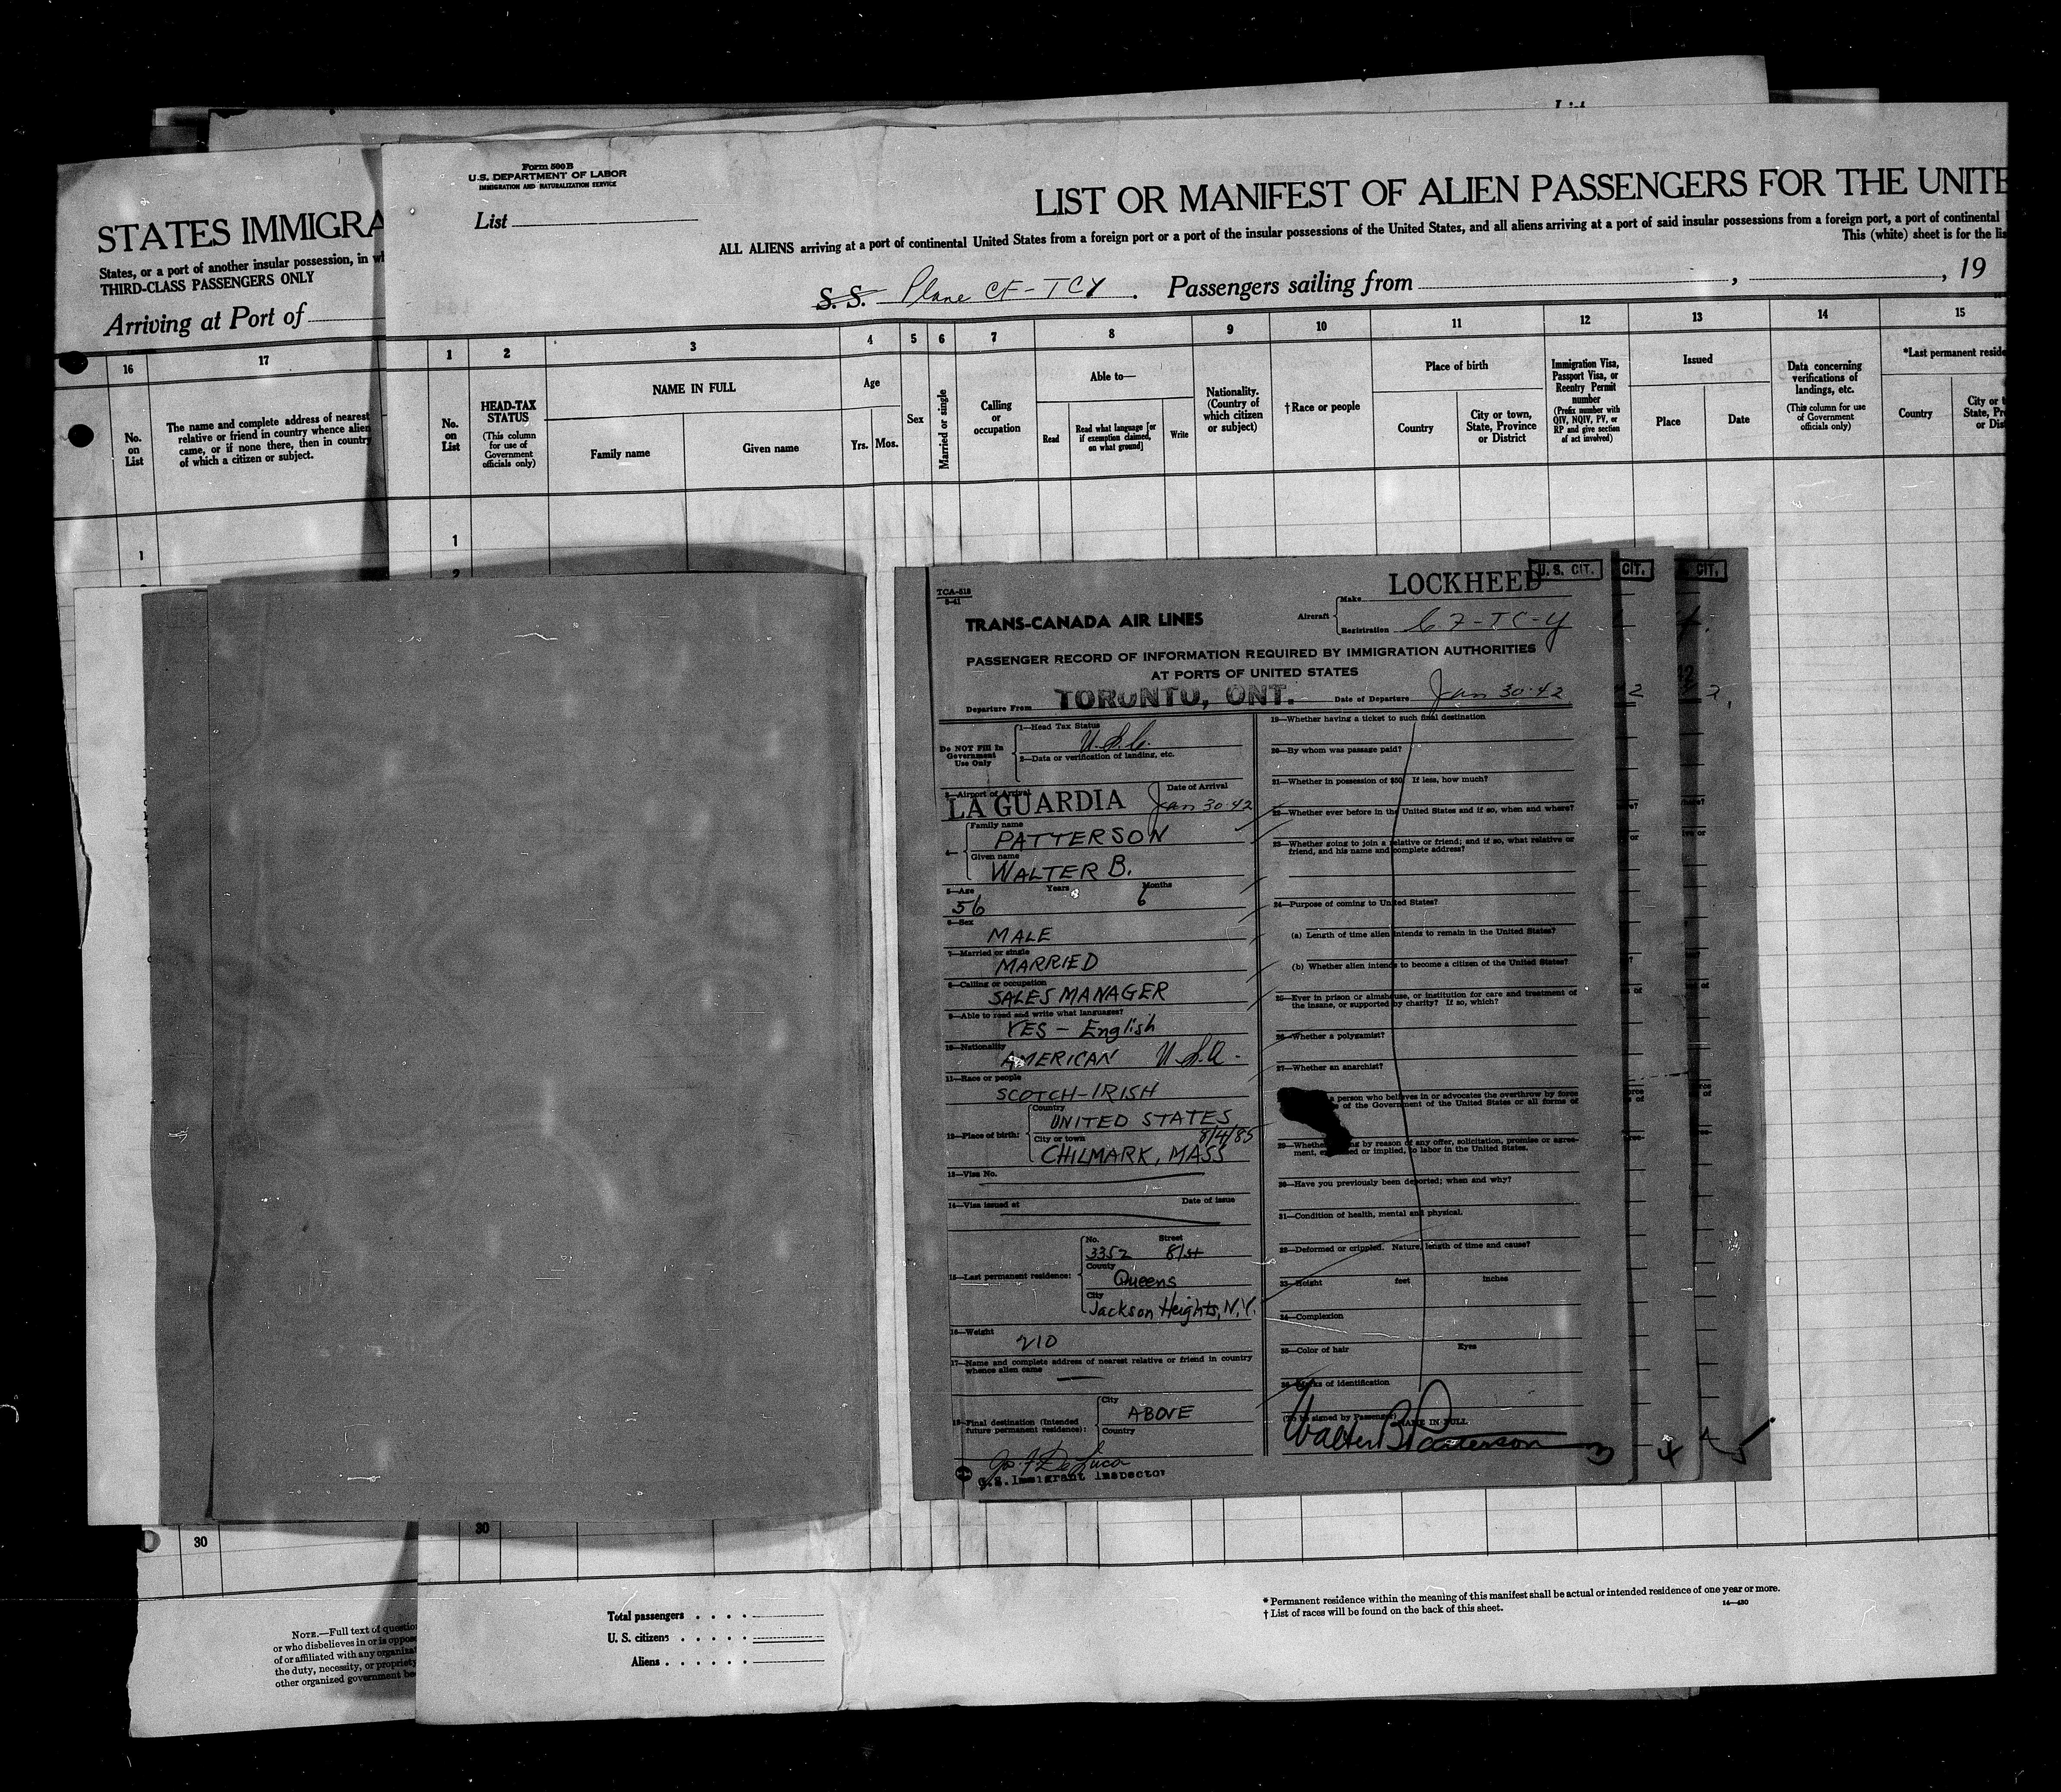 List
Form 500 B
U.S. DEPARTMENT OF LABOR
IMMIGRATION AND NATURALIZATION SERVICE
List
LIST OR MANIFEST OF ALIEN PASSENGERS FOR THE UNITE
ALL ALIENS arriving at a port of continental United States from a foreign port or a port of the insular possessions of the United States, and all aliens arriving at a port of said insular possessions from a foreign port, a port of continental
This (white) sheet is for the lis
S. S. Plane CF-TCY. Passengers sailing from , , 19
STATES IMMIGRA
States, or a port of another insular possession, in wh
THIRD-CLASS PASSENGERS ONLY
Arriving at Port of
16 17
No. on List
The name and complete address of nearest
relative or friend in country whence alien
came, or if none there, then in country
of which a citizen or subject.
1
1 2 3 4 5 6 7 8 9 10 11 12 13 14 15
No. on List
HEAD-TAX STATUS
(This column for use of Government officials only)
NAME IN FULL
Family name Given name
Age
Yrs. Mos.
Sex
Married or single
Calling or occupation
Able to—
Read
Read what language [or if exemption claimed, on what ground]
Write
Nationality. (Country of which citizen or subject)
† Race or people
Place of birth
Country
City or town, State, Province or District
Immigration Visa, Passport Visa, or Reentry Permit number
(Prefix number with QIV, NQIV, PV, or RP and give section of act involved)
Issued
Place Date
Data concerning verifications of landings, etc.
(This column for use of Government officials only)
*Last permanent reside
Country
City or t
State, Pr
or Dis
1
2
TCA-518
8-41
TRANS-CANADA AIR LINES
Aircraft
Make LOCKHEED
Registration CF-TC-Y
U. S. CIT.
CIT.
CIT.
PASSENGER RECORD OF INFORMATION REQUIRED BY IMMIGRATION AUTHORITIES
AT PORTS OF UNITED STATES
Departure From TORONTO, ONT. Date of Departure Jan 30-42
Do NOT Fill In Government Use Only
1—Head Tax Status
U.S.C.
2—Data or verification of landing, etc.
3—Airport of Arrival Date of Arrival
LA GUARDIA Jan 30-42
4—
Family name
PATTERSON
Given name
WALTER B.
5—Age Years Months
56 6
6—Sex
MALE
7—Married or single
MARRIED
8—Calling or occupation
SALES MANAGER
9—Able to read and write what languages?
YES - English
10—Nationality
AMERICAN U.S.A.
11—Race or people
SCOTCH-IRISH
12—Place of birth:
Country
UNITED STATES
City or town 8/4/85
CHILMARK, MASS
13—Visa No.
14—Visa issued at Date of issue
15—Last permanent residence:
No. Street
3352 81st
County
Queens
City
Jackson Heights, N.Y.
16—Weight
210
17—Name and complete address of nearest relative or friend in country
whence alien came
18—Final destination (Intended
future permanent residence):
City
ABOVE
Country
U.S. Immigrant Inspector
19—Whether having a ticket to such final destination
20—By whom was passage paid?
21—Whether in possession of $50 If less, how much?
22—Whether ever before in the United States and if so, when and where?
23—Whether going to join a relative or friend; and if so, what relative or
friend, and his name and complete address?
24—Purpose of coming to United States?
(a) Length of time alien intends to remain in the United States?
(b) Whether alien intends to become a citizen of the United States?
25—Ever in prison or almshouse, or institution for care and treatment of
the insane, or supported by charity? If so, which?
26—Whether a polygamist?
27—Whether an anarchist?
a person who believes in or advocates the overthrow by force
of the Government of the United States or all forms of
29—Whether by reason of any offer, solicitation, promise or agree-
ment, or implied, to labor in the United States.
30—Have you previously been deported; when and why?
31—Condition of health, mental and physical.
32—Deformed or crippled. Nature, length of time and cause?
33—Height feet inches
34—Complexion
35—Color of hair Eyes
36—Marks of identification
(To be signed by Passenger) NAME IN FULL
Walter B Patterson
3
4
5
30
30
NOTE.—Full text of question
or who disbelieves in or is oppos
of or affiliated with any organiza
the duty, necessity, or propriety
other organized government be
Total passengers . . . .
U. S. citizens . . . . .
Aliens . . . . . .
* Permanent residence within the meaning of this manifest shall be actual or intended residence of one year or more.
† List of races will be found on the back of this sheet.
14—430